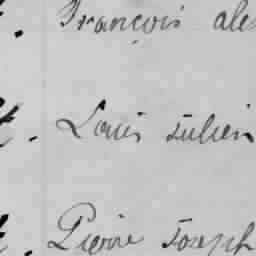 t. François ale
t. Louis Julien
t. Pierre Joseph